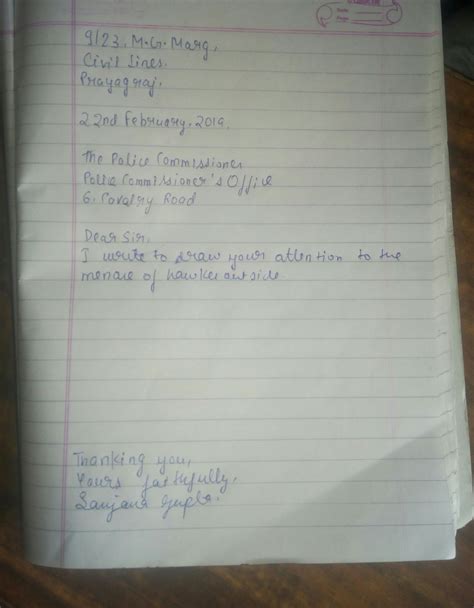 Date
Page
9/23, M.G. Marg,
Civil Lines.
Prayagraj.
22nd February, 2019.
The Police Commissioner
Police Commissioner's Office
6, Cavalry Road
Dear Sir,
I write to draw your attention to the
menace of hawker outside
Thanking you,
Yours faithfully,
Sanjana Gupta.